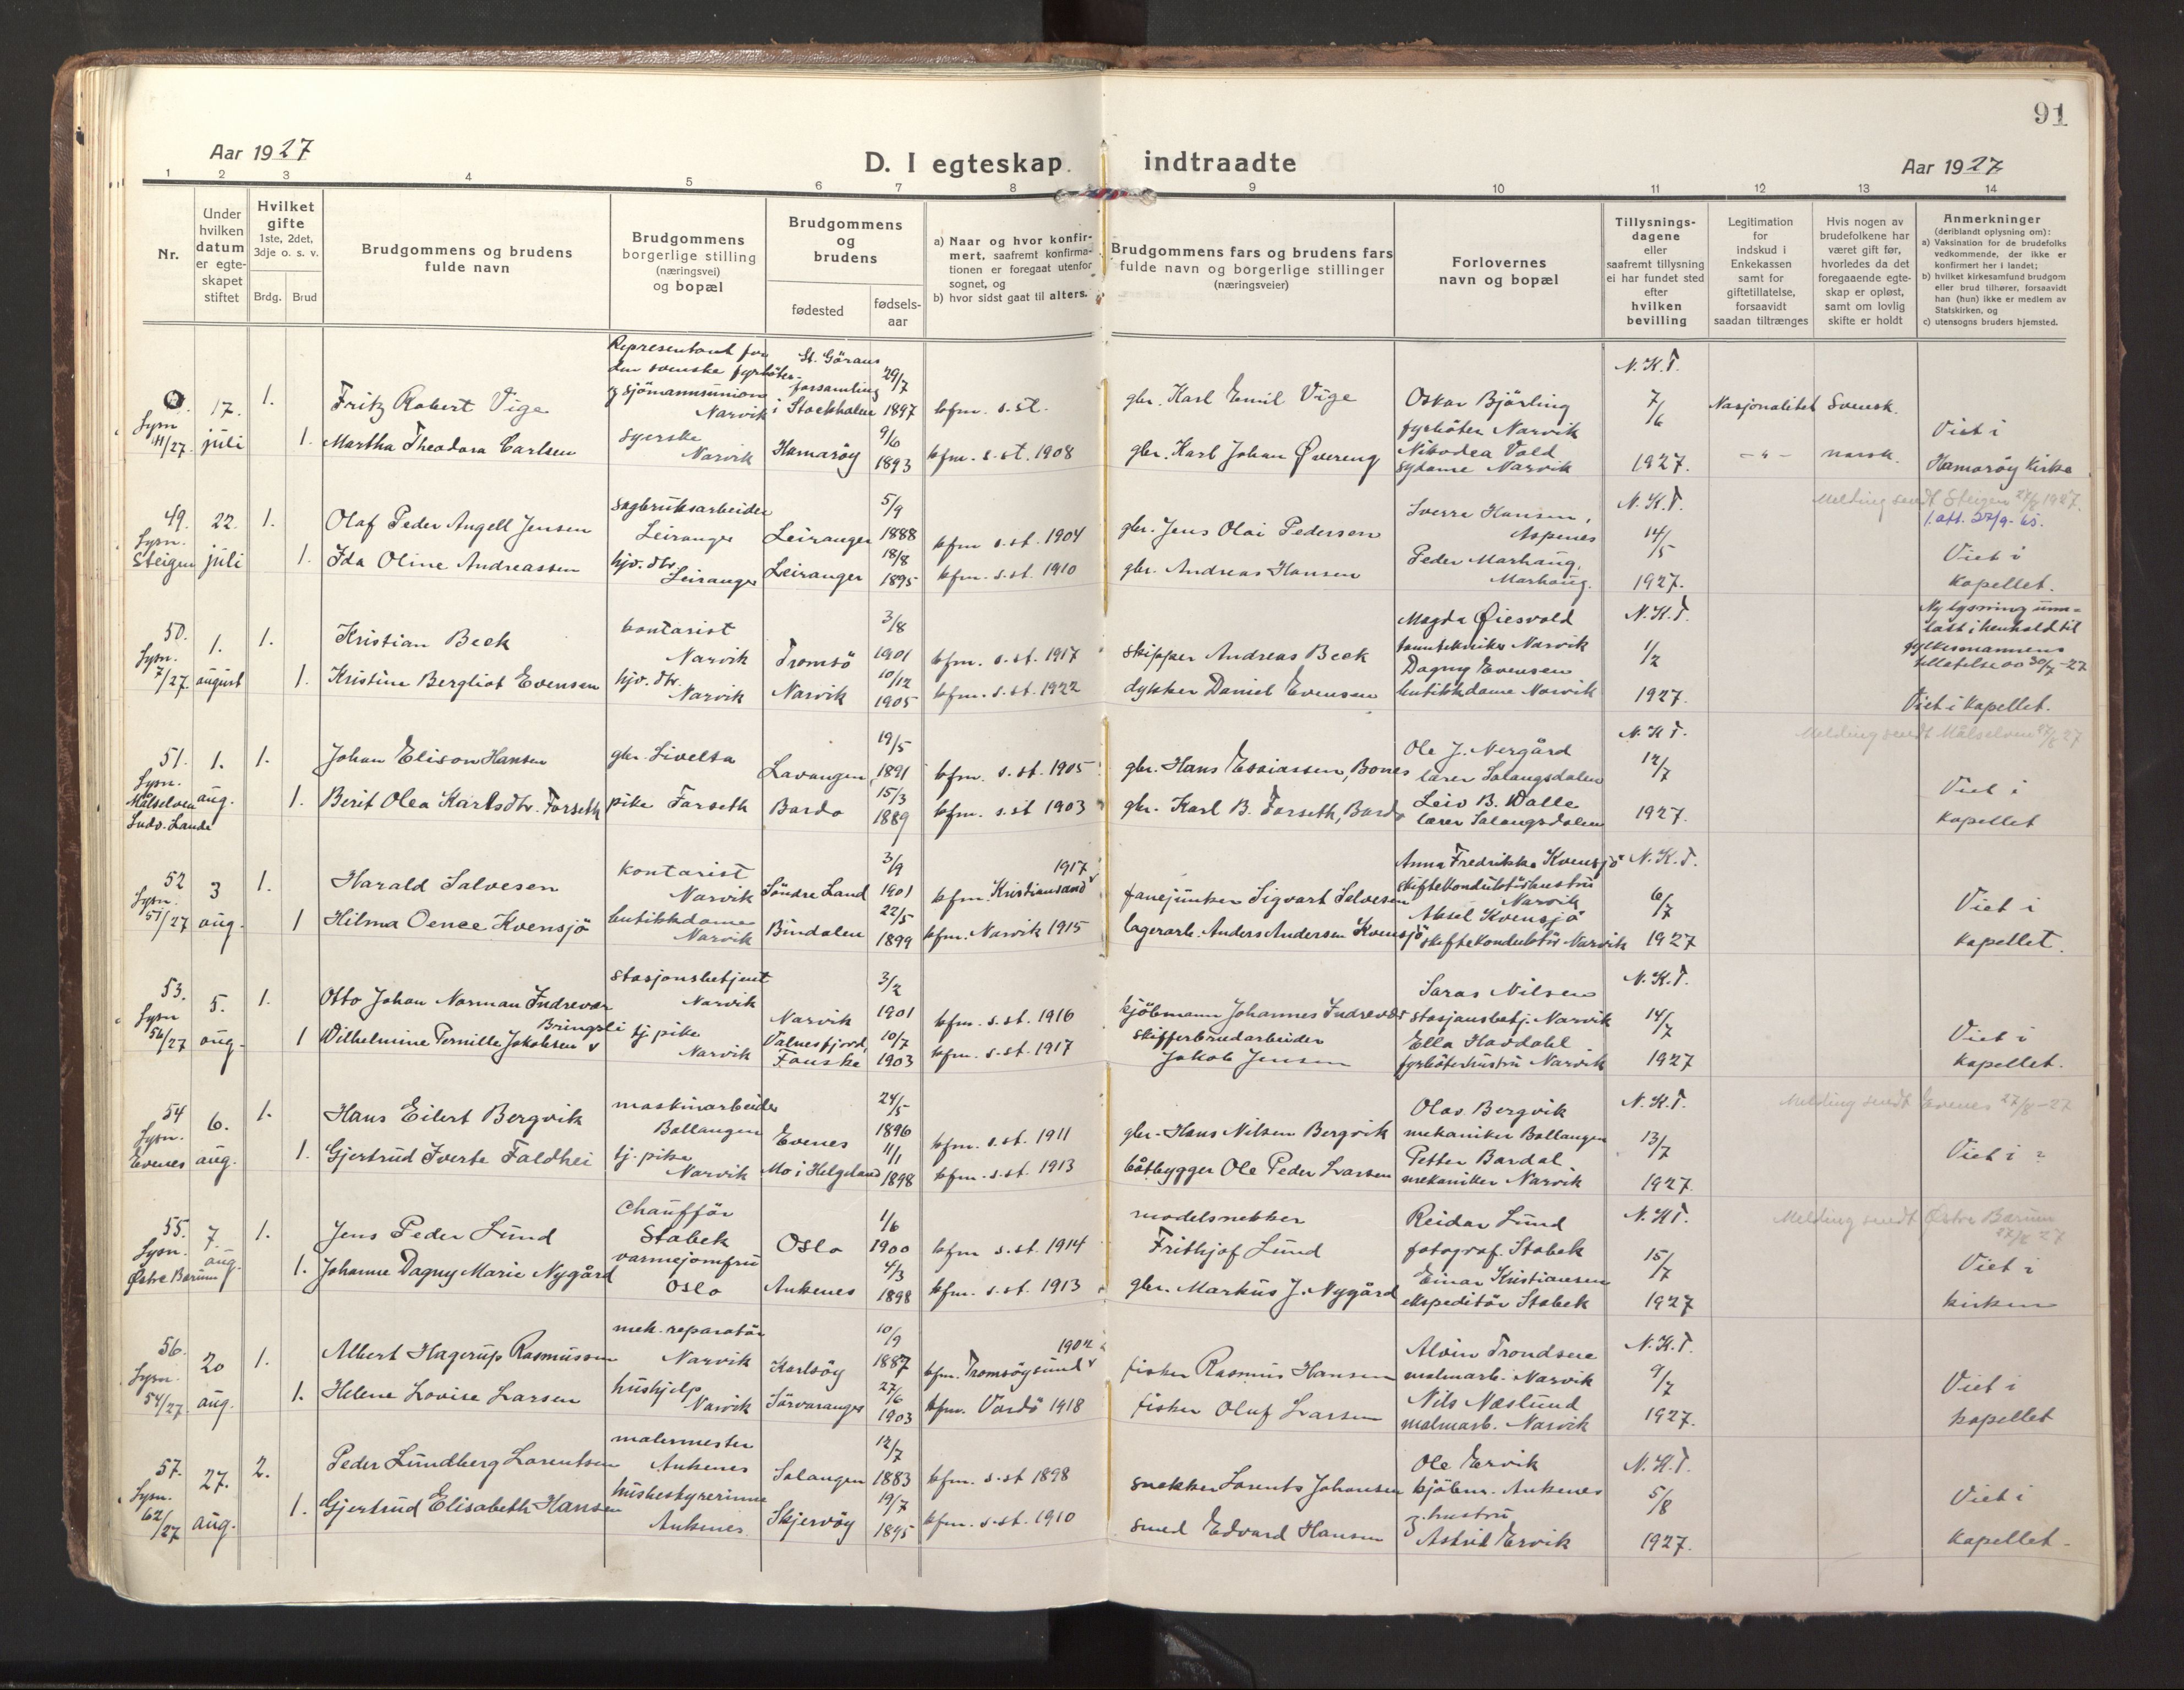 91
Aar 1927
D. I egteskap indtraadte
Aar 1927
1 2 3 4 5 6 7 8 9 10 11 12 13 14
Nr.
Under hvilken datum er egteskapet stiftet
Hvilket gifte
1ste, 2det, 3dje o. s. v.
Brdg. Brud
Brudgommens og brudens fulde navn
Brudgommens borgerlige stilling (næringsvei) og bopæl
Brudgommens og brudens
fødested
fødselsaar
a) Naar og hvor konfirmert, saafremt konfirmationen er foregaat utenfor sognet, og
b) hvor sidst gaat til alters.
Brudgommens fars og brudens fars fulde navn og borgerlige stillinger (næringsveier)
Forlovernes navn og bopæl
Tillysningsdagene eller saafremt tillysning ei har fundet sted efter hvilken bevilling
Legitimation for indskud i Enkekassen samt for giftetillatelse, forsaavidt saadan tiltrænges
Hvis nogen av brudefolkene har været gift før, hvorledes da det foregaaende egteskap er opløst, samt om lovlig skifte er holdt
Anmerkninger (deriblandt oplysning om):
a) Vaksination for de brudefolks vedkommende, der ikke er konfirmert her i landet;
b) hvilket kirkesamfund brudgom eller brud tilhører, forsaavidt han (hun) ikke er medlem av Statskirken, og
c) utensogns bruders hjemsted.
Lysn. 41/27. 17. juli 1. Fritz Robert Vige Representant for den svenske fyrböter- og sjömannsunion Narvik St. Görans forsamling i Stockholm 29/7 1897 kfm. s. st. gbr. Karl Emil Vige Oskar Björling fyrböter Narvik N.K.T. 7/6 Nasjonalitet Svensk.
1. Martha Theodora Carlsen syerske Narvik Hamarøy 9/6 1893 kfm. s. st. 1908 gbr. Karl Johan Øvereng Nikodea Vold sydame Narvik 1927. - " - norsk. Viet i Hamarøy Kirke
49. Lysn. Steigen 22. juli 1. Olaf Peder Angell Jensen sagbruksarbeider Leiranger Leiranger 5/9 1888 kfm s. st. 1904 gbr. Jens Olai Pedersen Sverre Hansen, Aspenes N.K.T. 14/5 Melding sendt Steigen 27/8 1927. 1. att. 27/9-65.
1. Ida Oline Andreassen hjv. dtr. Leiranger Leiranger 18/8 1895 kfm. s. st. 1910 gbr. Andreas Hansen Peder Marhaug, Marhaug. 1927. Viet i kapellet.
50. Lysn. 7/27. 1. august 1. Kristian Beck kontorist Narvik Tromsö 3/8 1901 kfm. s. st. 1917 skipper Andreas Beck Magda Øiesvold tanntekniker Narvik N.K.T. 1/2 Ny lysning unnlatt i henhold til fylkesmannens tillatelse av 30/7-27
1. Kristine Bergliot Evensen hjv. dtr. Narvik Narvik 10/12 1905 kfm. s. st. 1922 dykker Daniel Evensen Dagny Evensen butikkdame Narvik 1927. Viet i kapellet.
51. Lysn. Målselven Ludv. Lande 1. aug. 1. Johan Elison Hansen gbr. Livelta Lavangen 19/5 1891 kfm. s. st. 1905 gbr. Hans Esaiassen, Bones Ole J. Nergård lærer Salangsdalen N.K.T. 12/7 Melding sendt Målselven 27/8 27
1. Berit Olea Karlsdtr. Forseth pike Forseth Bardo 15/3 1889 kfm. s. st 1903 gbr. Karl B. Forseth, Bardo Leiv B. Walle lærer Salangsdalen 1927. Viet i kapellet
52 Lysn. 51/27 3 aug. 1. Harald Salvesen kontorist Narvik Söndre Land 3/9 1901 kfm. Kristiansand 1917 fanejunker Sigvart Salvesen Anna Fredrikke Kvensjö skiftekonduktörhustru Narvik N.K.T. 6/7
1 Hilma Oence Kvensjö butikkdame Narvik Bindalen 22/5 1899 kfm. Narvik 1915 lagerarb. Anders Andersen Kvensjö Aksel Kvensjö skiftekonduktör Narvik 1927 Viet i kapellet.
53. Lysn 56/27 5. aug. 1. Otto Johan Norman Indrevær stasjonsbetjent Narvik Narvik 3/2 1901 kfm. s. st. 1916 kjöbmann Johannes Indrevær Saras Nilsen stasjonsbetj. Narvik N.K.T. 14/7
1 Wilhelmine Pernille Jakobsen Bringsli tj. pike Narvik Valnesfjord, Fauske 10/7 1903 kfm. s. st. 1917 skifferbrudarbeider Jakob Jensen Ella Haddahl fyrböterhustru Narvik 1927 Viet i kapellet.
54 Lysn. Evenes 6. aug. 1. Hans Eilert Bergvik maskinarbeider Ballangen Evenes 24/5 1896 kfm. s. st. 1911 gbr. Hans Nilsen Bergvik Olav Bergvik mekaniker Ballangen N.K.T. 13/7 Melding sendt Evenes 27/8-27
1. Gjertrud Iverte Faldhei tj. pike Narvik Mo i Helgeland 11/1 1898 kfm. s. st. 1913 båtbygger Ole Peder Larsen Petter Bardal mekaniker Narvik 1927 Viet i ?
55. Lysn. Østre Bærum 7. aug. 1. Jens Peder Lund Chauffør Stabek Oslo 1/6 1900 kfm s. st. 1914 modelsnekker Frithjof Lund Reidar Lund fotograf. Stabek N.K.T. 15/7 Melding sendt Østre Bærum 27/8 27
1. Johanne Dagny Marie Nygård varmejomfru Oslo Ankenes 4/3 1898 kfm. s. st. 1913 gbr. Markus J. Nygård Einar Kristiansen ekspeditör Stabek 1927 Viet i kirken
56. Lysn. 54/27 20 aug. 1. Albert Hagerup Rasmussen mek. reparatör Narvik Karlsöy 10/9 1887 kfm. Tromsöysund 1902 fisker Rasmus Hansen Alvin Trondsen malmarb. Narvik N.K.T. 9/7
1. Helene Lovise Larsen hushjelp Narvik Sörvaranger 27/6 1903 kfm. Vardö 1918 fisker Oluf Larsen Nils Næslund malmarb. Narvik 1927. Viet i kapellet
57. Lysn. 62/27 27. aug. 2. Peder Lundberg Lorentsen malermester Ankenes Salangen 12/7 1883 kfm. s. st 1898 snekker Lorents Johansen Ole Ervik kjöbm. Ankenes N.K.T. 5/8
1. Gjertrud Elisabeth Hansen husbestyrerinne Ankenes Skjervöy 19/7 1895 kfm. s. st. 1910 smed Edvard Hansen og hustru Astrid Ervik 1927. Viet i kapellet.